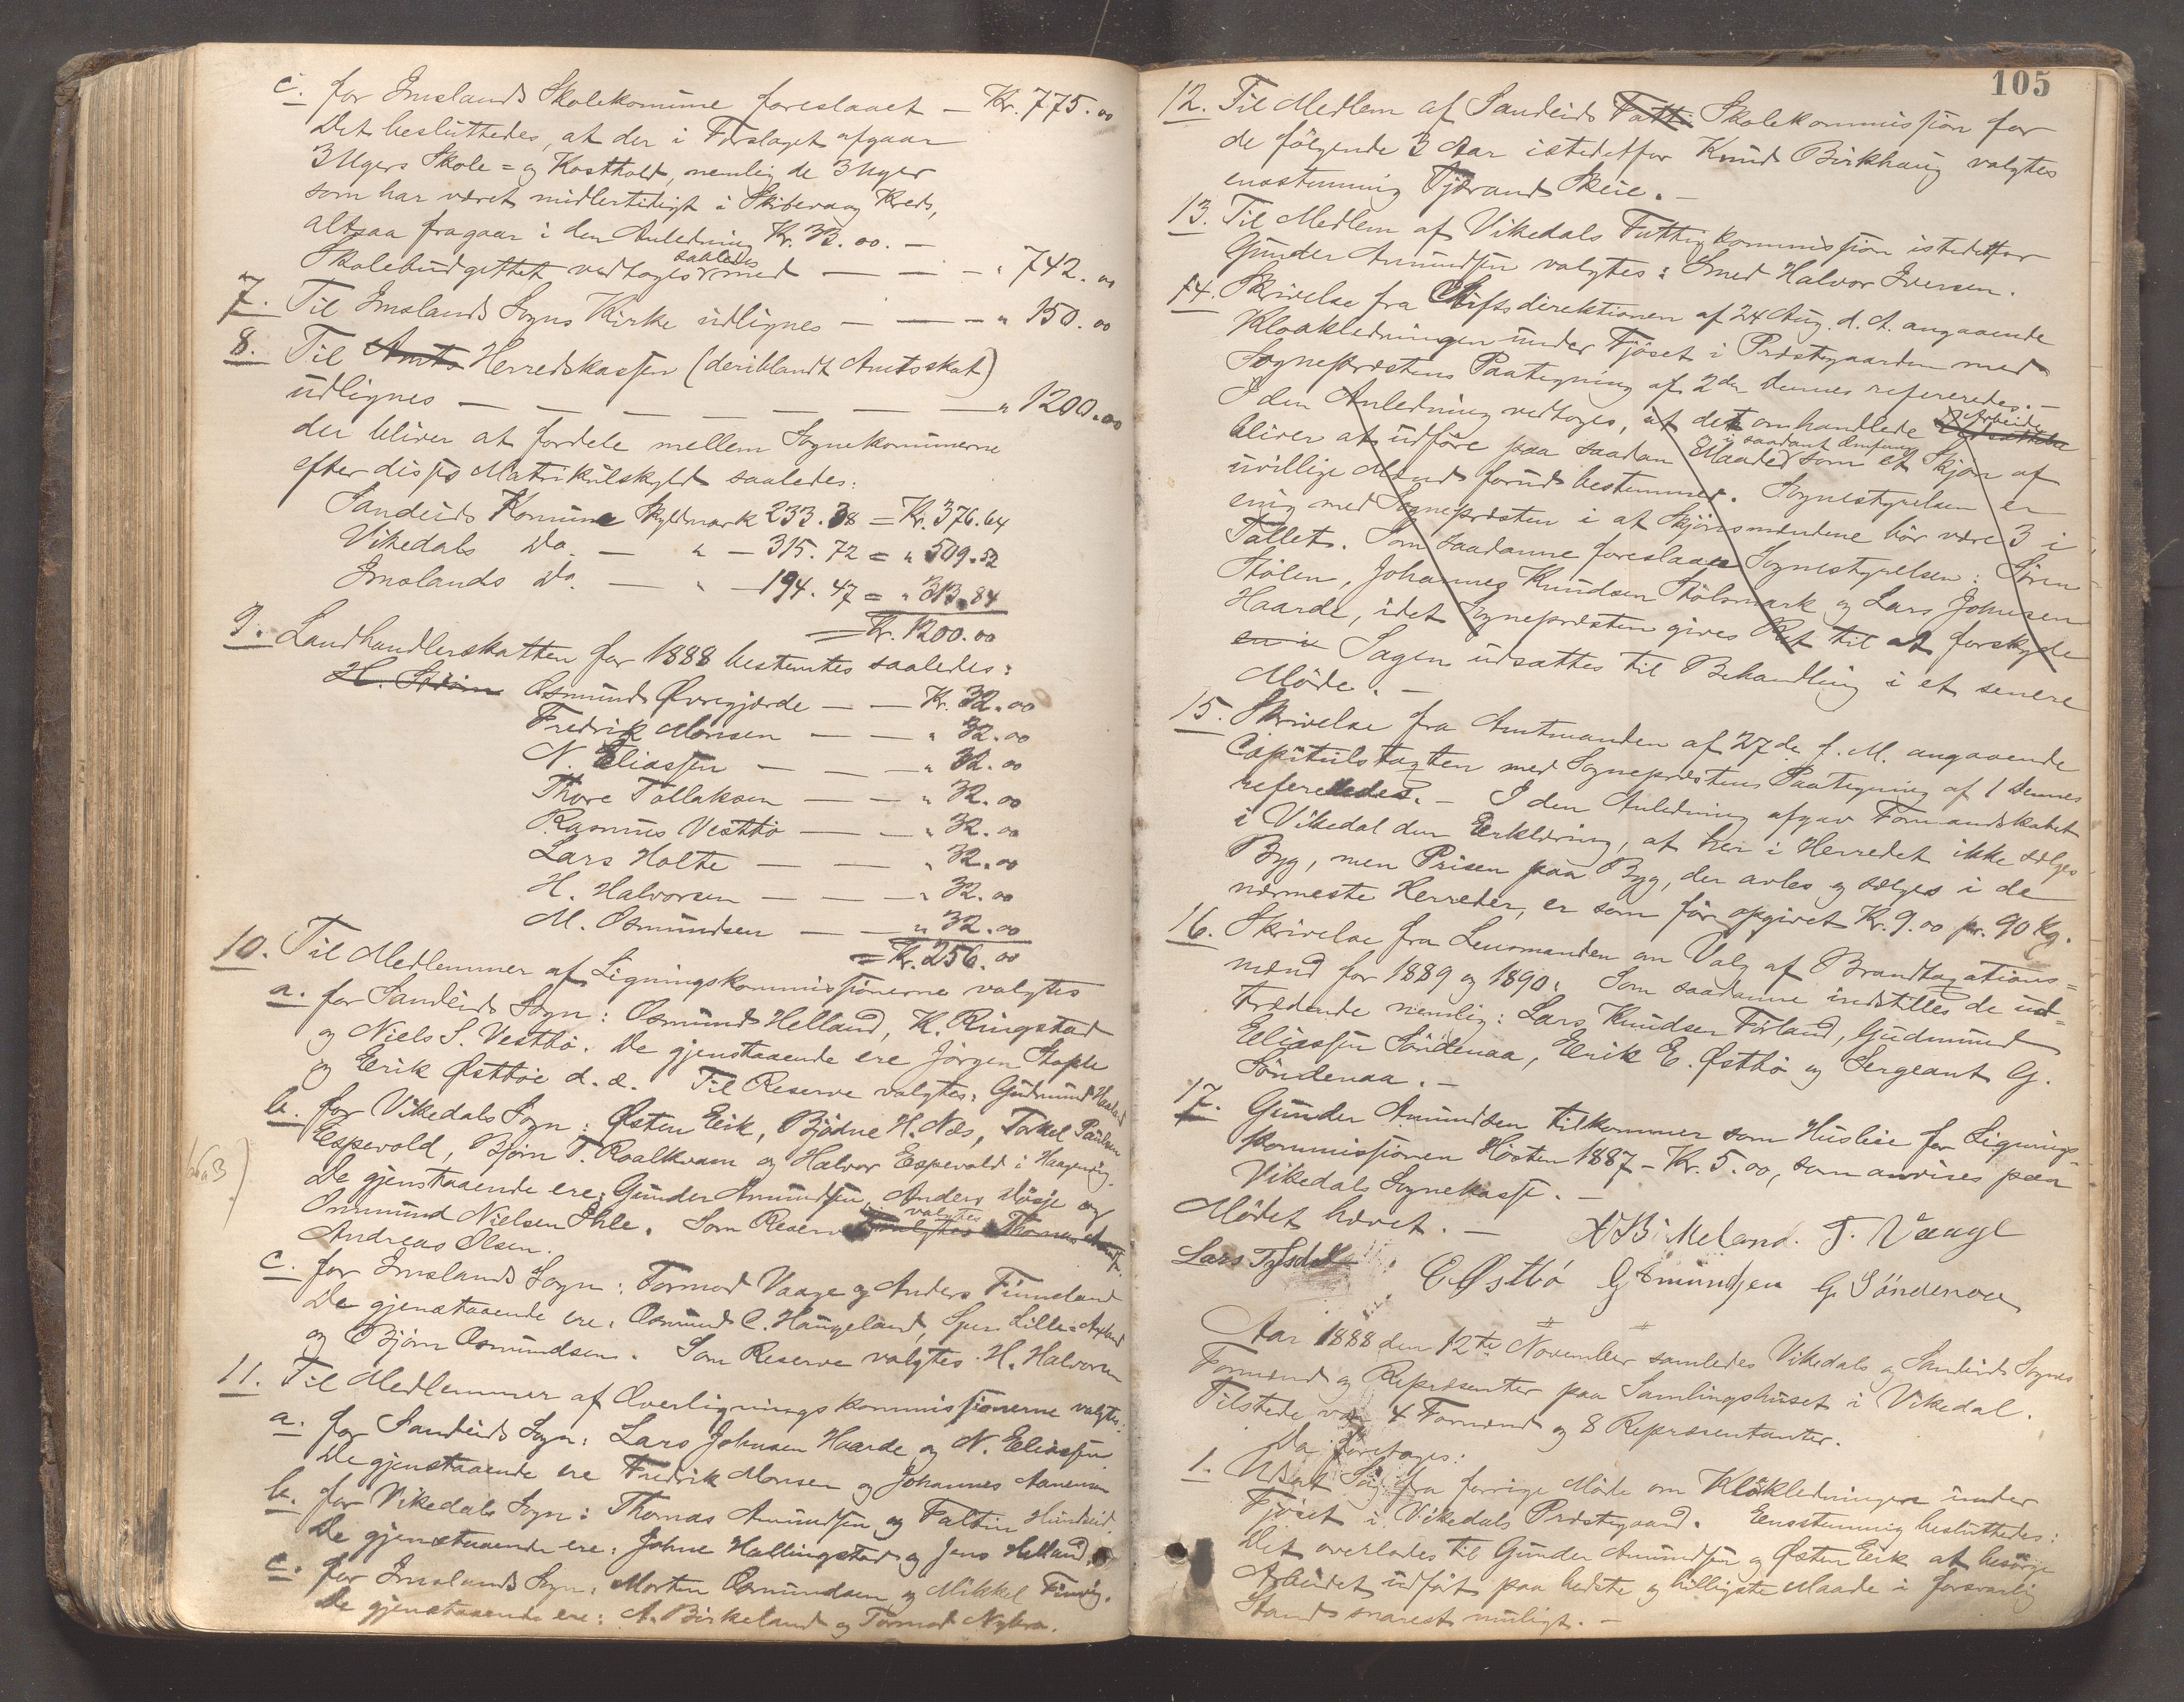 c. for Imslands Skolekomune foreslaaet — Kr. 775.00
Det besluttedes, at der i Forslaget afgaar
3 Ugers Skole= og Kosthold, nemlig de 3 Uger
som har været midlertidigt i Skibevaag Kreds,
altsaa fragaar i den Anledning Kr. 33.00. —
saaledes
Skolebudgettet vedtoges med — — — " 742.00
7. Til Imslands Sogns Kirke udlignes — — — " 150.00
8. Til Amts Herredskassen (deriblandt Amtsskat)
udlignes — — — — — — — " 1200.00
der bliver at fordele mellem Sognekomunerne
efter disses Matrikulskyld saaledes:
Sandeids Komune Skyldmark 233.38 = Kr. 376.64
Vikedals Do. — " — 315.72 = " 509.52
Imslands Do. — " — 194.47 = " 313.84
= Kr. 1200.00
9. Landhandlerskatten for 1888 bestemtes saaledes:
H. Ström Osmund Øvregjærde — — Kr. 32.00
Fredrik Monsen — — " 32.00
N. Eliassen — — — " 32.00
Thore Tollaksen — — " 32.00
Rasmus Vestbö — — " 32.00
Lars Holte — — " 32.00
H. Halvorsen — — — " 32.00
M. Osmundsen — — " 32.00
= Kr. 256.00
10. Til Medlemmer af Ligningskommissionerne valgtes
a. for Sandeids Sogn: Osmund Helland, K. Ringstad
og Niels S. Vestbö. De gjenstaaende ere Jörgen Stople
og Erik Østböe d. æ. Til Reserve valgtes: Gudmund Haaland
b. for Vikedals Sogn: Østen Eik, Bjödne H. Næs, Torkel Paulsen
Espevold, Björn T. Roalkvam og Halvor Espevold i Haagenvig.
De gjenstaaende ere: Gunder Amundsen, Anders Mösje og
valgtes
Ommund Nielsen Øhle. Som Reserve valgtes Thomas Amunds.
Andreas Olsen.
c. for Imslands Sogn: Tormod Vaage og Anders Finneland
De gjenstaaende ere: Osmund C. Haugeland, Lille=Axland
og Björn Osmundsen. Som Reserve valgtes H. Halvorsen
11. Til Medlemmer af Overligningskommissionerne valgtes:
a. for Sandeids Sogn: Lars Johnsen Haarde og N. Eliassen
De gjenstaaende ere Fredrik Monsen og Johannes Aanensen
b. for Vikedals Sogn: Thomas Amundsen og Faltin Hundseid.
De gjenstaaende ere: Johne Hallingstad og Jens Helland
c. for Imslands Sogn: Morten Osmundsen og Mikkel Finvig.
De gjenstaaende ere: A. Birkeland og Tormod Nykra.
105
12. Til Medlem af Sandeids Fatti Skolekommission for
de fölgende 3 Aar istedetfor Knud Birkhaug valgtes
ensstemmig Tjerand Skeie. —
13. Til Medlem af Vikedals Fattigkommission istedetfor
Gunder Amundsen valgtes: Smed Halvor Iversen.
14. Skrivelse fra Stiftsdirektionen af 24 Aug. d. A. angaaende
Kloakledningen under Fjöset i Præstegaarden med
Sognepræstens Paategning af 2den dennes refereredes. —
Arbeide
I den Anledning vedtoges, at det omhandlede
i saadant Omfang
bliver at udföre paa saadan Maade som et Skjön af
uvillige Mænd forud bestemmer. Sognestyrelsen er
enig med Sognepræsten i at Skjönsmændene bör være 3 i
Tallet. Som saadanne foreslaaes Sognestyrelsen: Sören
Stölen, Johannes Knudsen Stölsmark og Lars Johnsen
Haarde, idet Sognepræsten gives Ret til at forskyde
en i Sagen udsattes til Behandling i et senere
Möde. —
15. Skrivelse fra Amtmanden af 27de f. M. angaaende
Capitulstaxten med Sognepræstens Paategning af 1 dennes
refereredes. — I den Anledning afgav Formandskabet
i Vikedal den Erklæring, at her i Herredet ikke sælges
Byg, men Prisen paa Byg, der avles og sælges i de
nærmeste Herreder, er som för opgivet Kr. 9.00 pr. 90 Kg.
16. Skrivelse fra Lensmanden om Valg af Brandtaxations=
mænd for 1889 og 1890. Som saadanne indstilles de ud=
trædende nemlig: Lars Knudsen Förland, Gudmund
Eliassen Söndenaa, Erik E. Østbö og Sergeant G.
Söndenaa. —
17. Gunder Amundsen tilkommer som Husleie for Lignings=
kommissionen Hösten 1887 — Kr. 5.00, som anvises paa
Vikedals Sognekasse. —
Mödet hævet. — A B Meland. T. Vaage
Lars Tysdal E Østbö G Amundsen G. Söndenaa
Aar 1888 den 12te November samledes Vikedals og Sandeids Sognes
Formænd og Repræsenter paa Samlingshuset i Vikedal.
Tilstede var 4 Formænd og 8 Repræsentanter.
Da foretoges:
1. Udsat Sag fra forrige Möde om Kloakledningen under
Fjöset i Vikedals Præstegaard. Eensstemmig besluttedes:
Det overlades til Gunder Amundsen og Østen Eik at besörge
Arbeidet udfört paa bedste og billigste Maade i forsvarlig
Stand snarest muligt. —